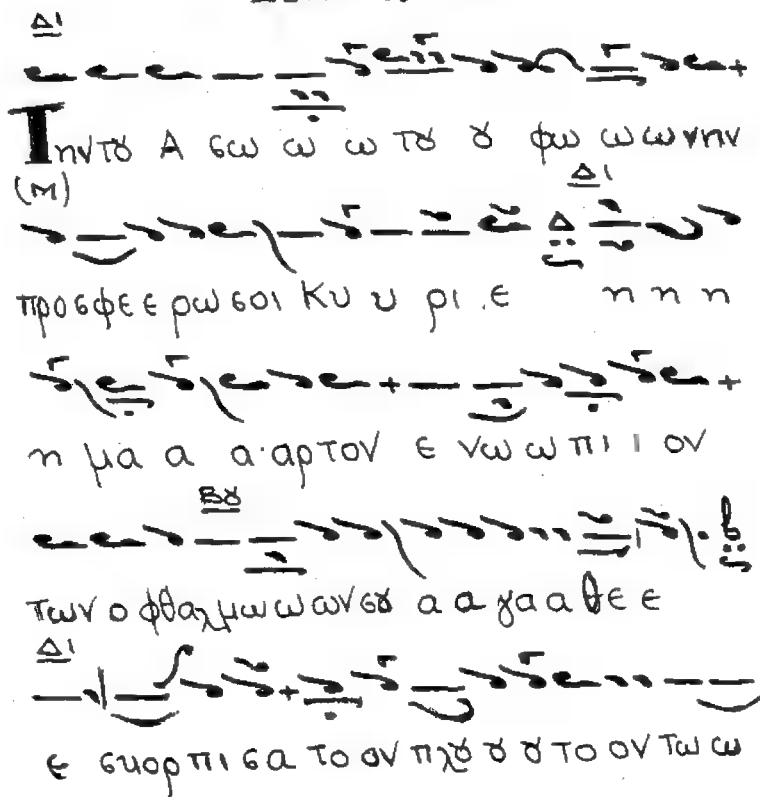 Δι
Τηντȣ Α σω ω ω τȣ ȣ φω ω ω νην
(Μ)
Δι
προσφε ε ρω σοι Κυ υ ρι ε η η η
η μα α α αρτον ε νω ω πι ι ι ον
Βȣ
των ο φθαλμω ω ων σȣ α α γα α θε ε
Δι
ε σκορπισα το ον πλȣ ȣ ȣ το ον τω ω